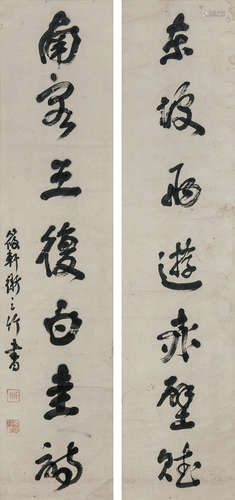 東坡兩遊赤壁賦
南容三復白圭詩
筱軒 書